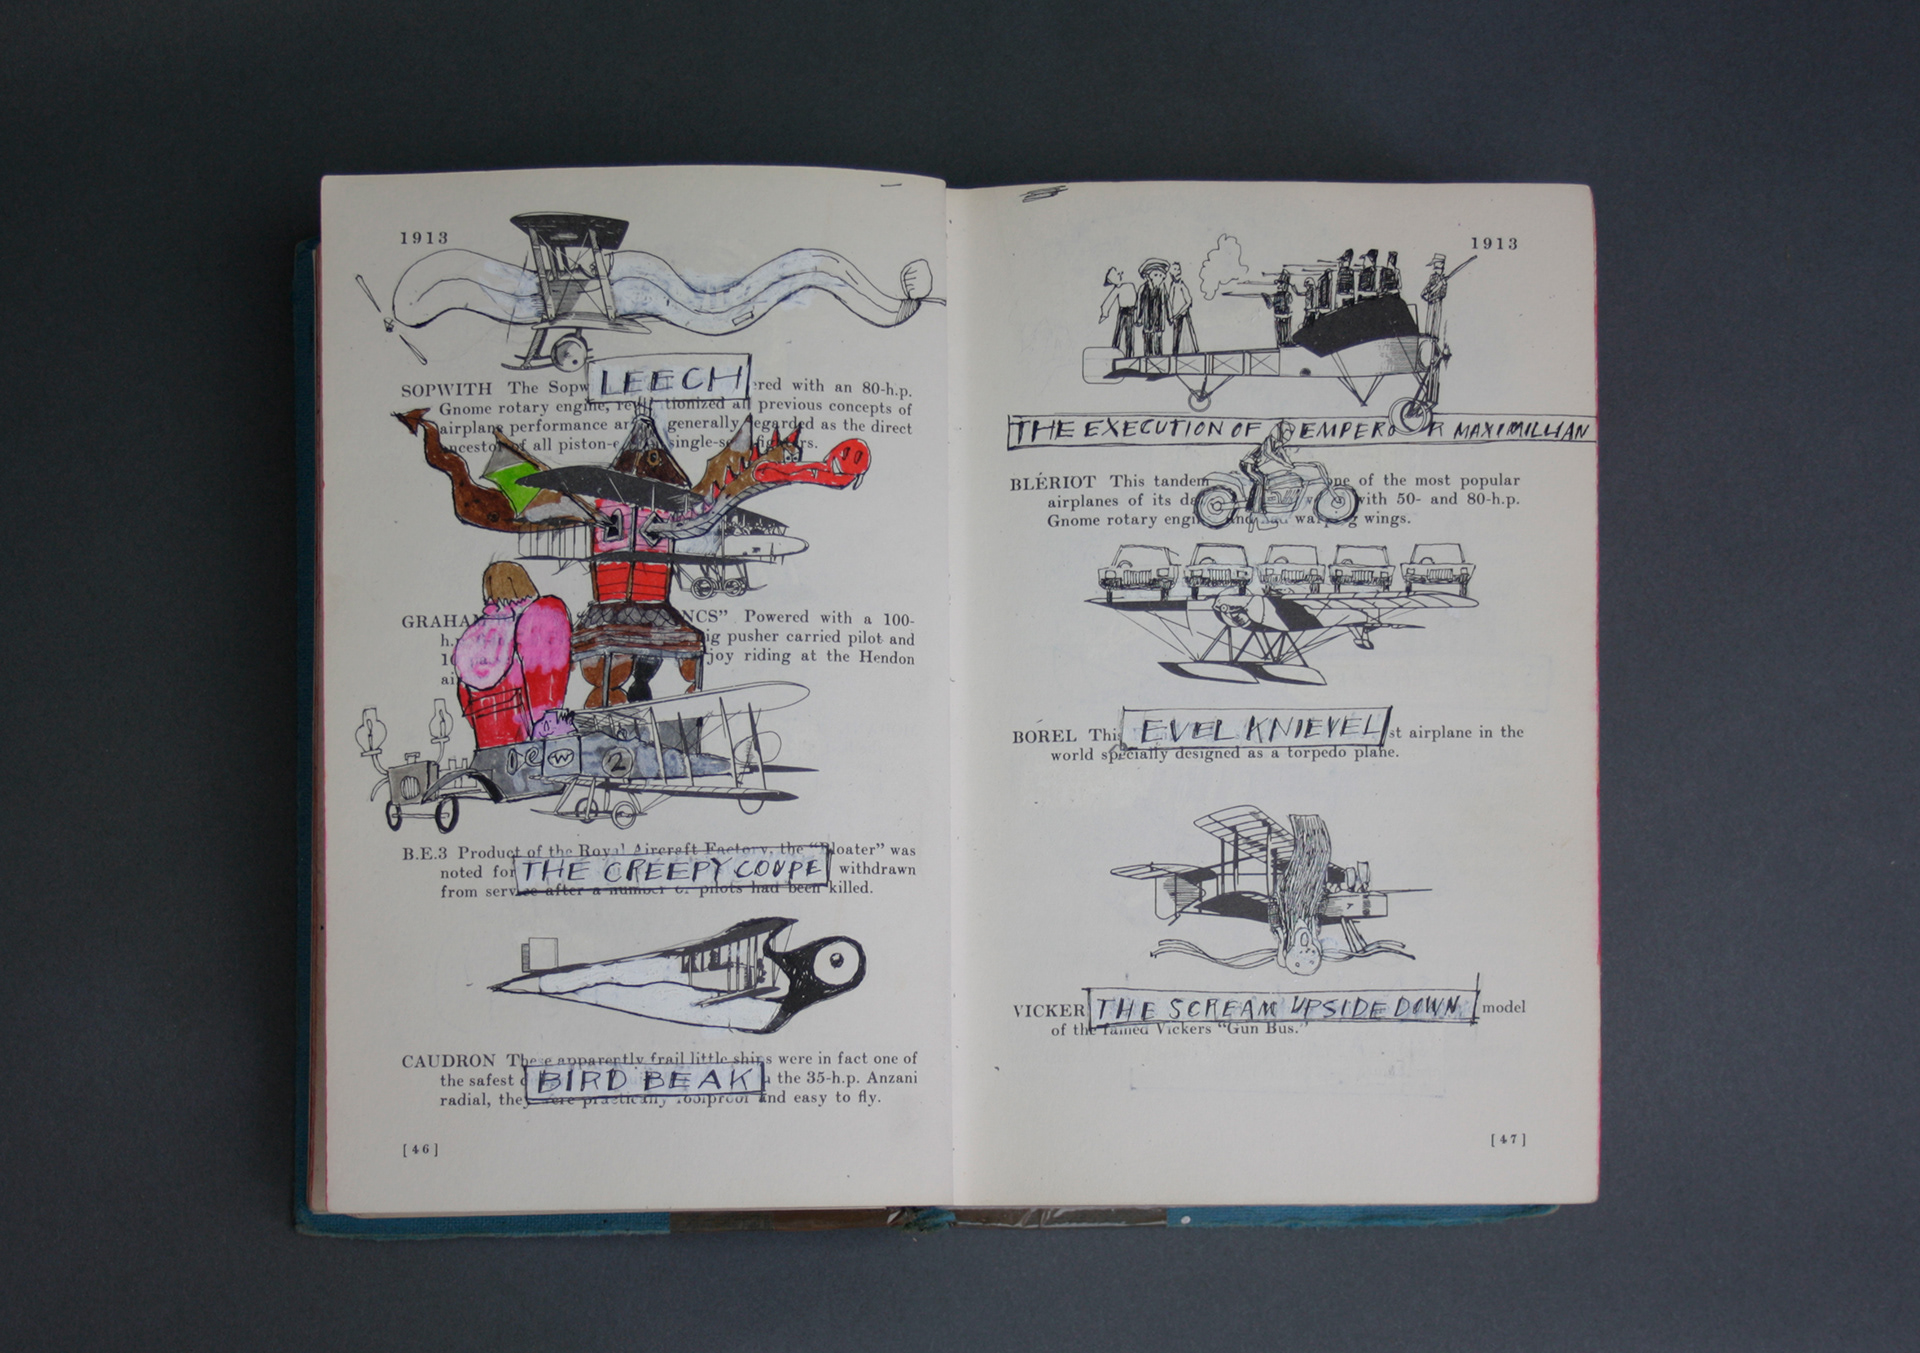 1913
LEECH
SOPWITH The Sopw ered with an 80-h.p.
Gnome rotary engine, rev utionized all previous concepts of
airplane performance an generally regarded as the direct
ancestor of all piston-e single-se fighters.
GRAHA NCS" Powered with a 100-
h. ig pusher carried pilot and
10 joy riding at the Hendon
ai
2
B.E.3 Product of the Royal Aircraft Factory, the "Bloater" was
noted for THE CREEPY COUPE withdrawn
from service after a number of pilots had been killed.
CAUDRON These apparently frail little ships were in fact one of
the safest BIRD BEAK the 35-h.p. Anzani
radial, they were practically foolproof and easy to fly.
[46]
1913
THE EXECUTION OF EMPEROR MAXIMILLIAN
BLÉRIOT This tandem one of the most popular
airplanes of its da with 50- and 80-h.p.
Gnome rotary engi and had warping wings.
BOREL This EVEL KNIEVEL st airplane in the
world specially designed as a torpedo plane.
VICKER THE SCREAM UPSIDE DOWN model
of the famed Vickers "Gun Bus."
[47]